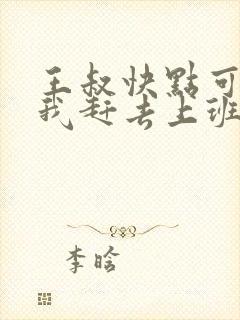 王叔快點可
我赶去上班
李晗